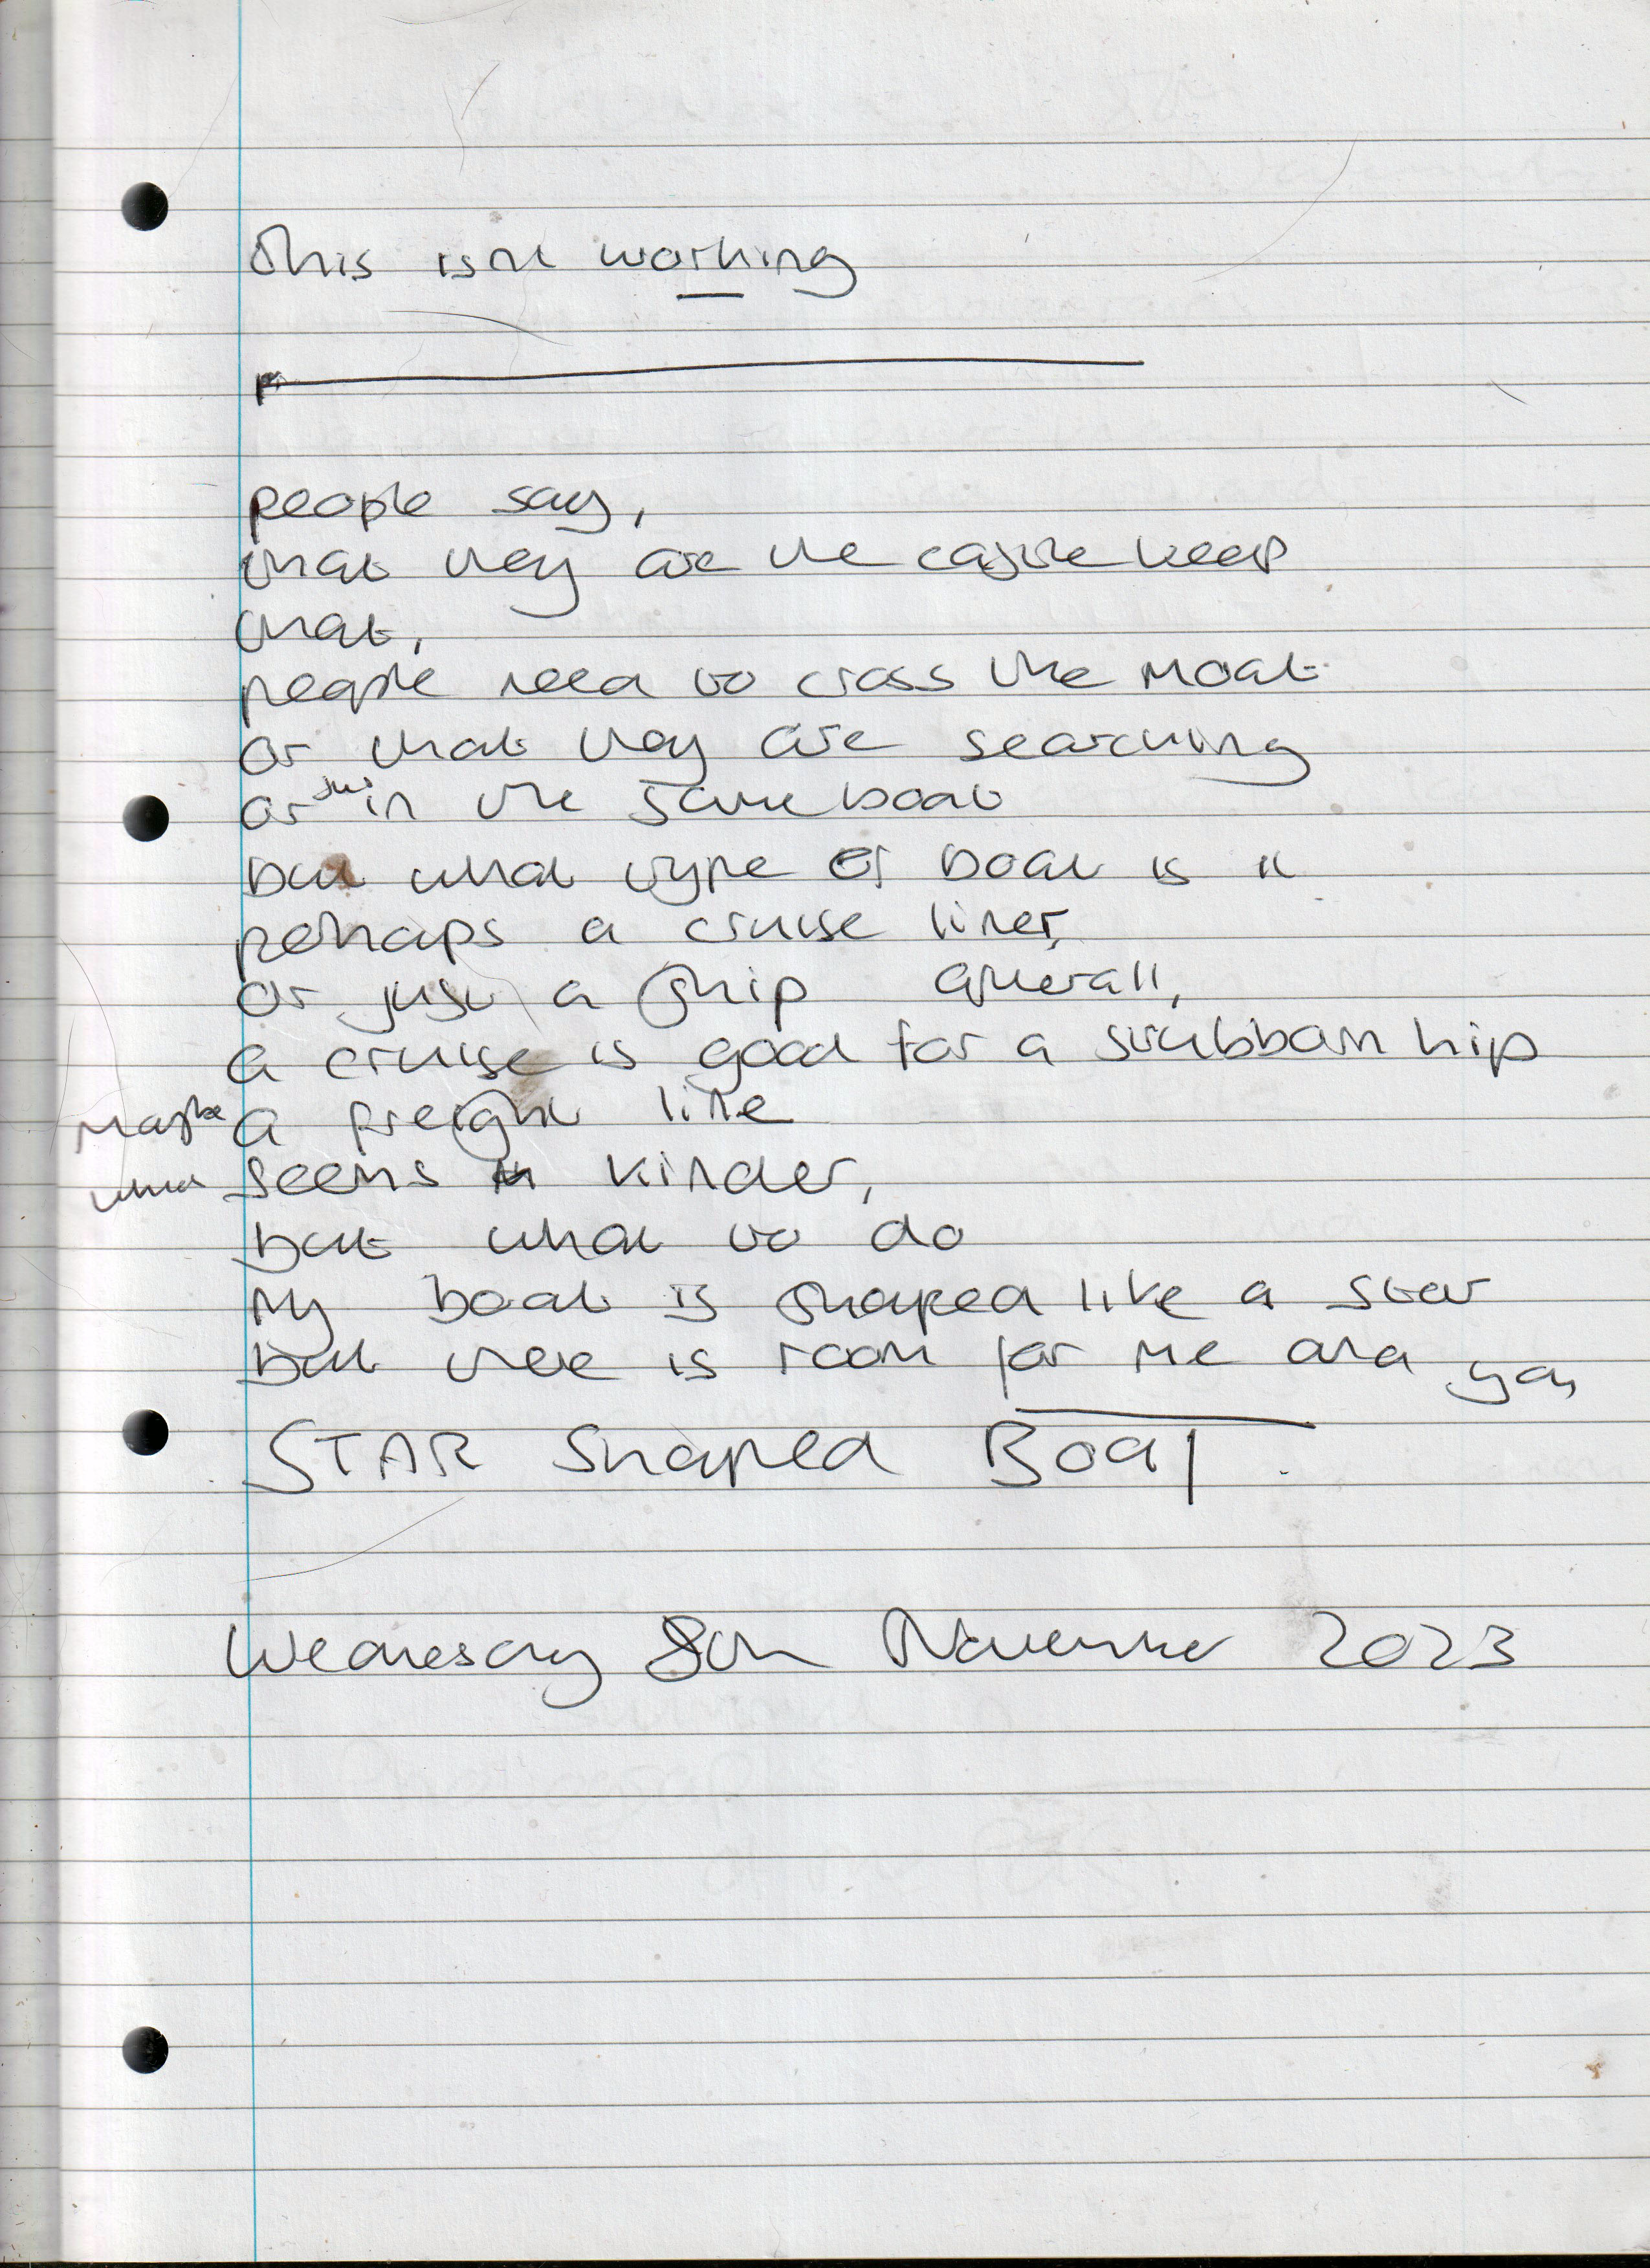 This isnt working
people say,
that they are the castle keep
that,
people need to cross the moat
or that they are searching
or just in the same boat
but what type of boat is it
perhaps a cruise liner,
or just a ship afterall,
a cruise is good for a stubborn hip
maybe a freight line
what seems kinder,
but what to do
My boat is shaped like a star
but there is room for me and you,
STAR Shaped BOAT.
Wednesday 8th November 2023